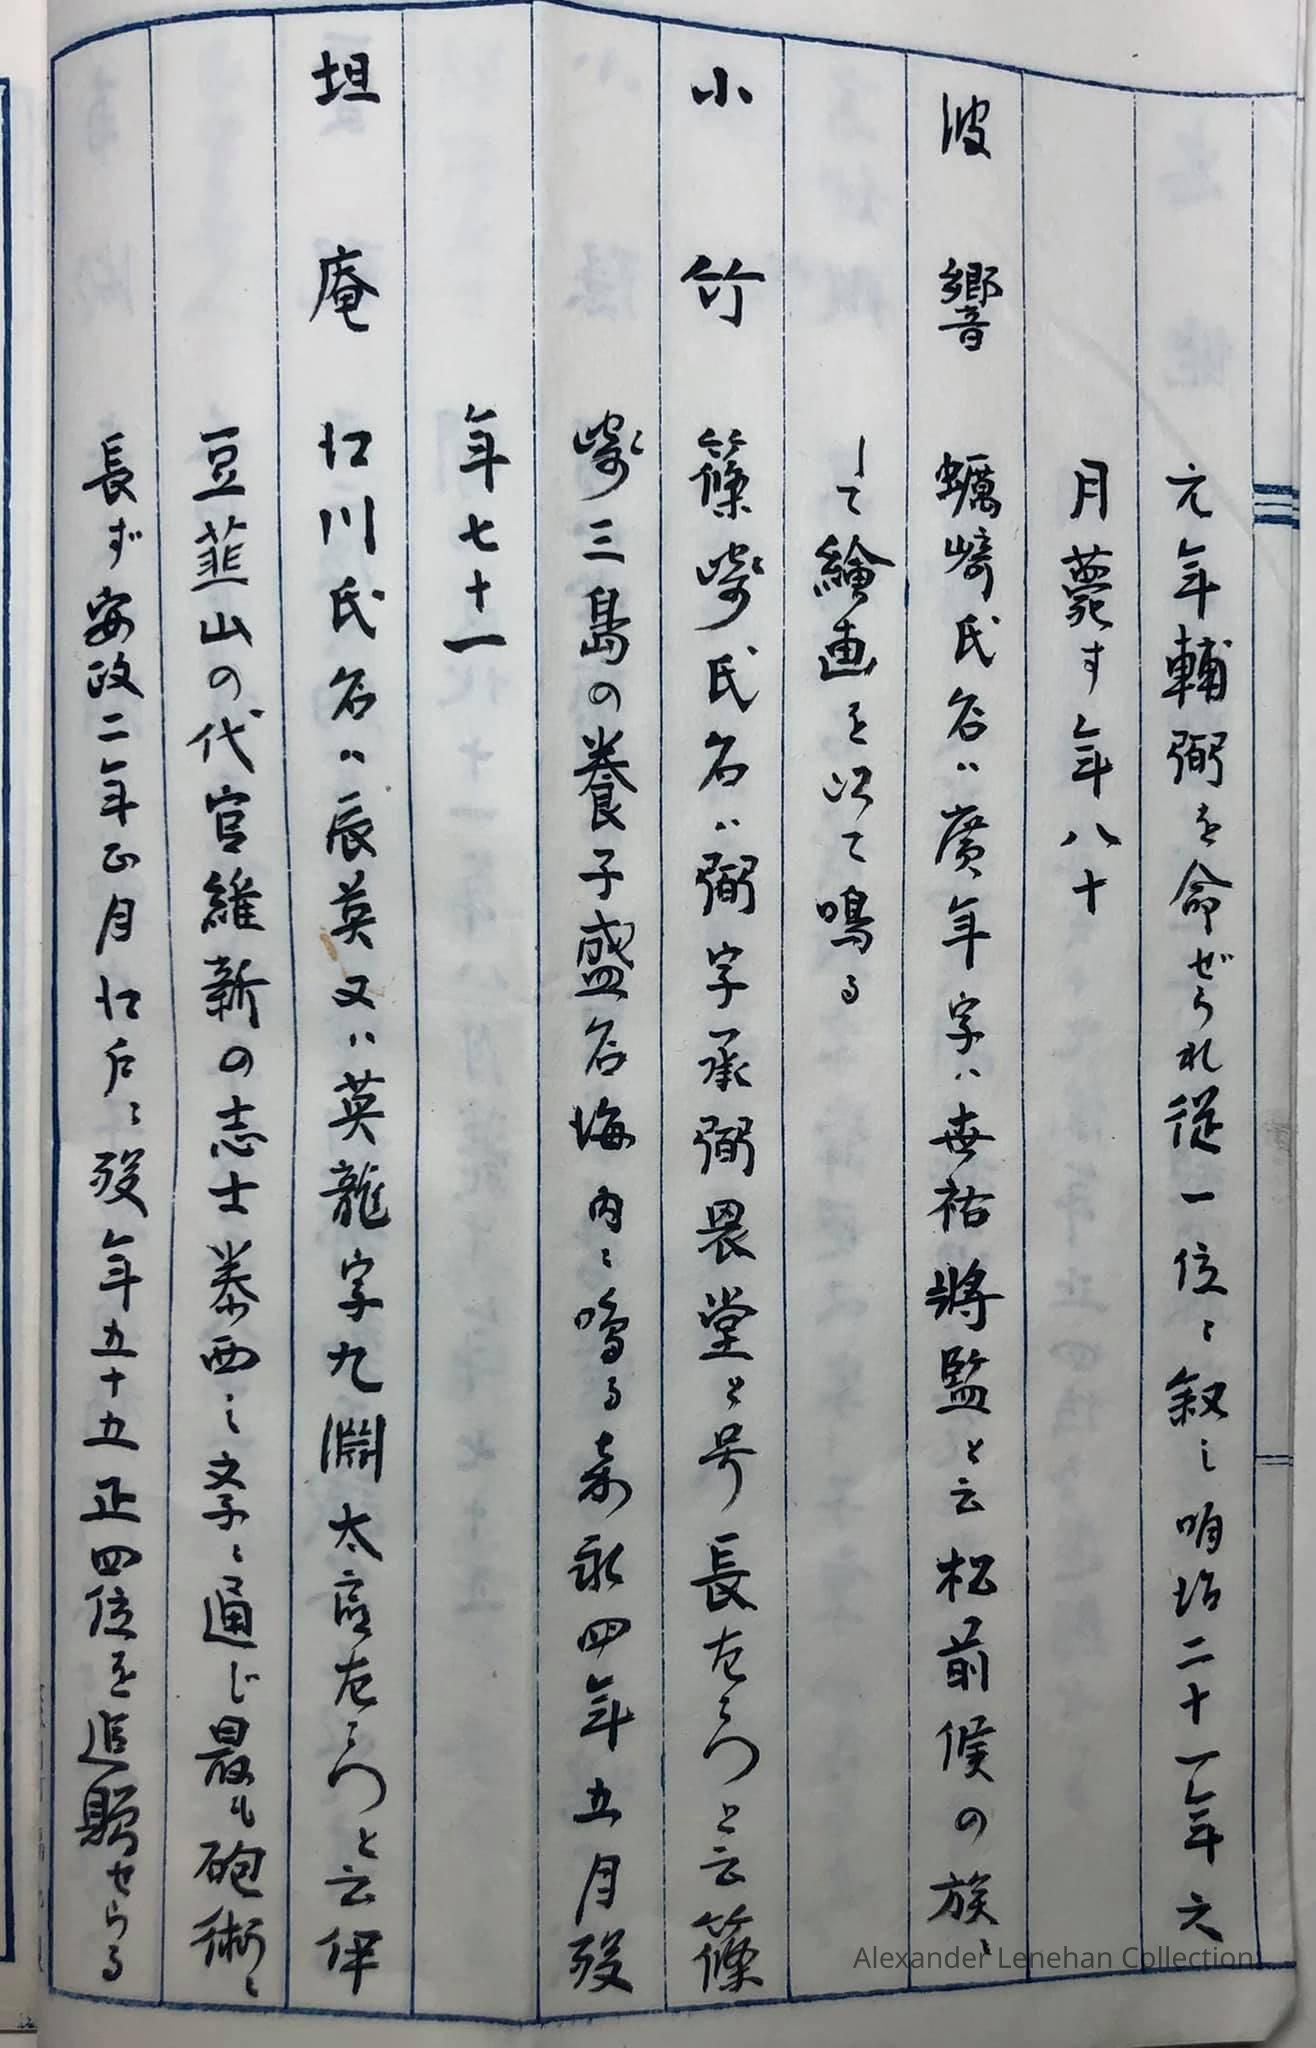 元年輔弼を命ぜられ従一位ニ叙し明治二十一年六
月薨す年八十
波響 蠣崎氏名ハ廣年字ハ世祐将監と云松前侯の族ニ
して繪画を以て鳴る
小竹 篠崎氏名ハ弼字承弼畏堂と号長左衛門と云篠
崎三島の養子盛名海内ニ鳴る嘉永四年五月歿
年七十一
坦庵 江川氏名ハ辰英又ハ英龍字九淵太郎左衛門と云伊
豆韮山の代官維新の志士泰西之文学ニ通じ最も砲術ニ
長ず安政二年正月江戸ニ歿年五十五正四位を追贈せらる
Alexander Lenehan Collection